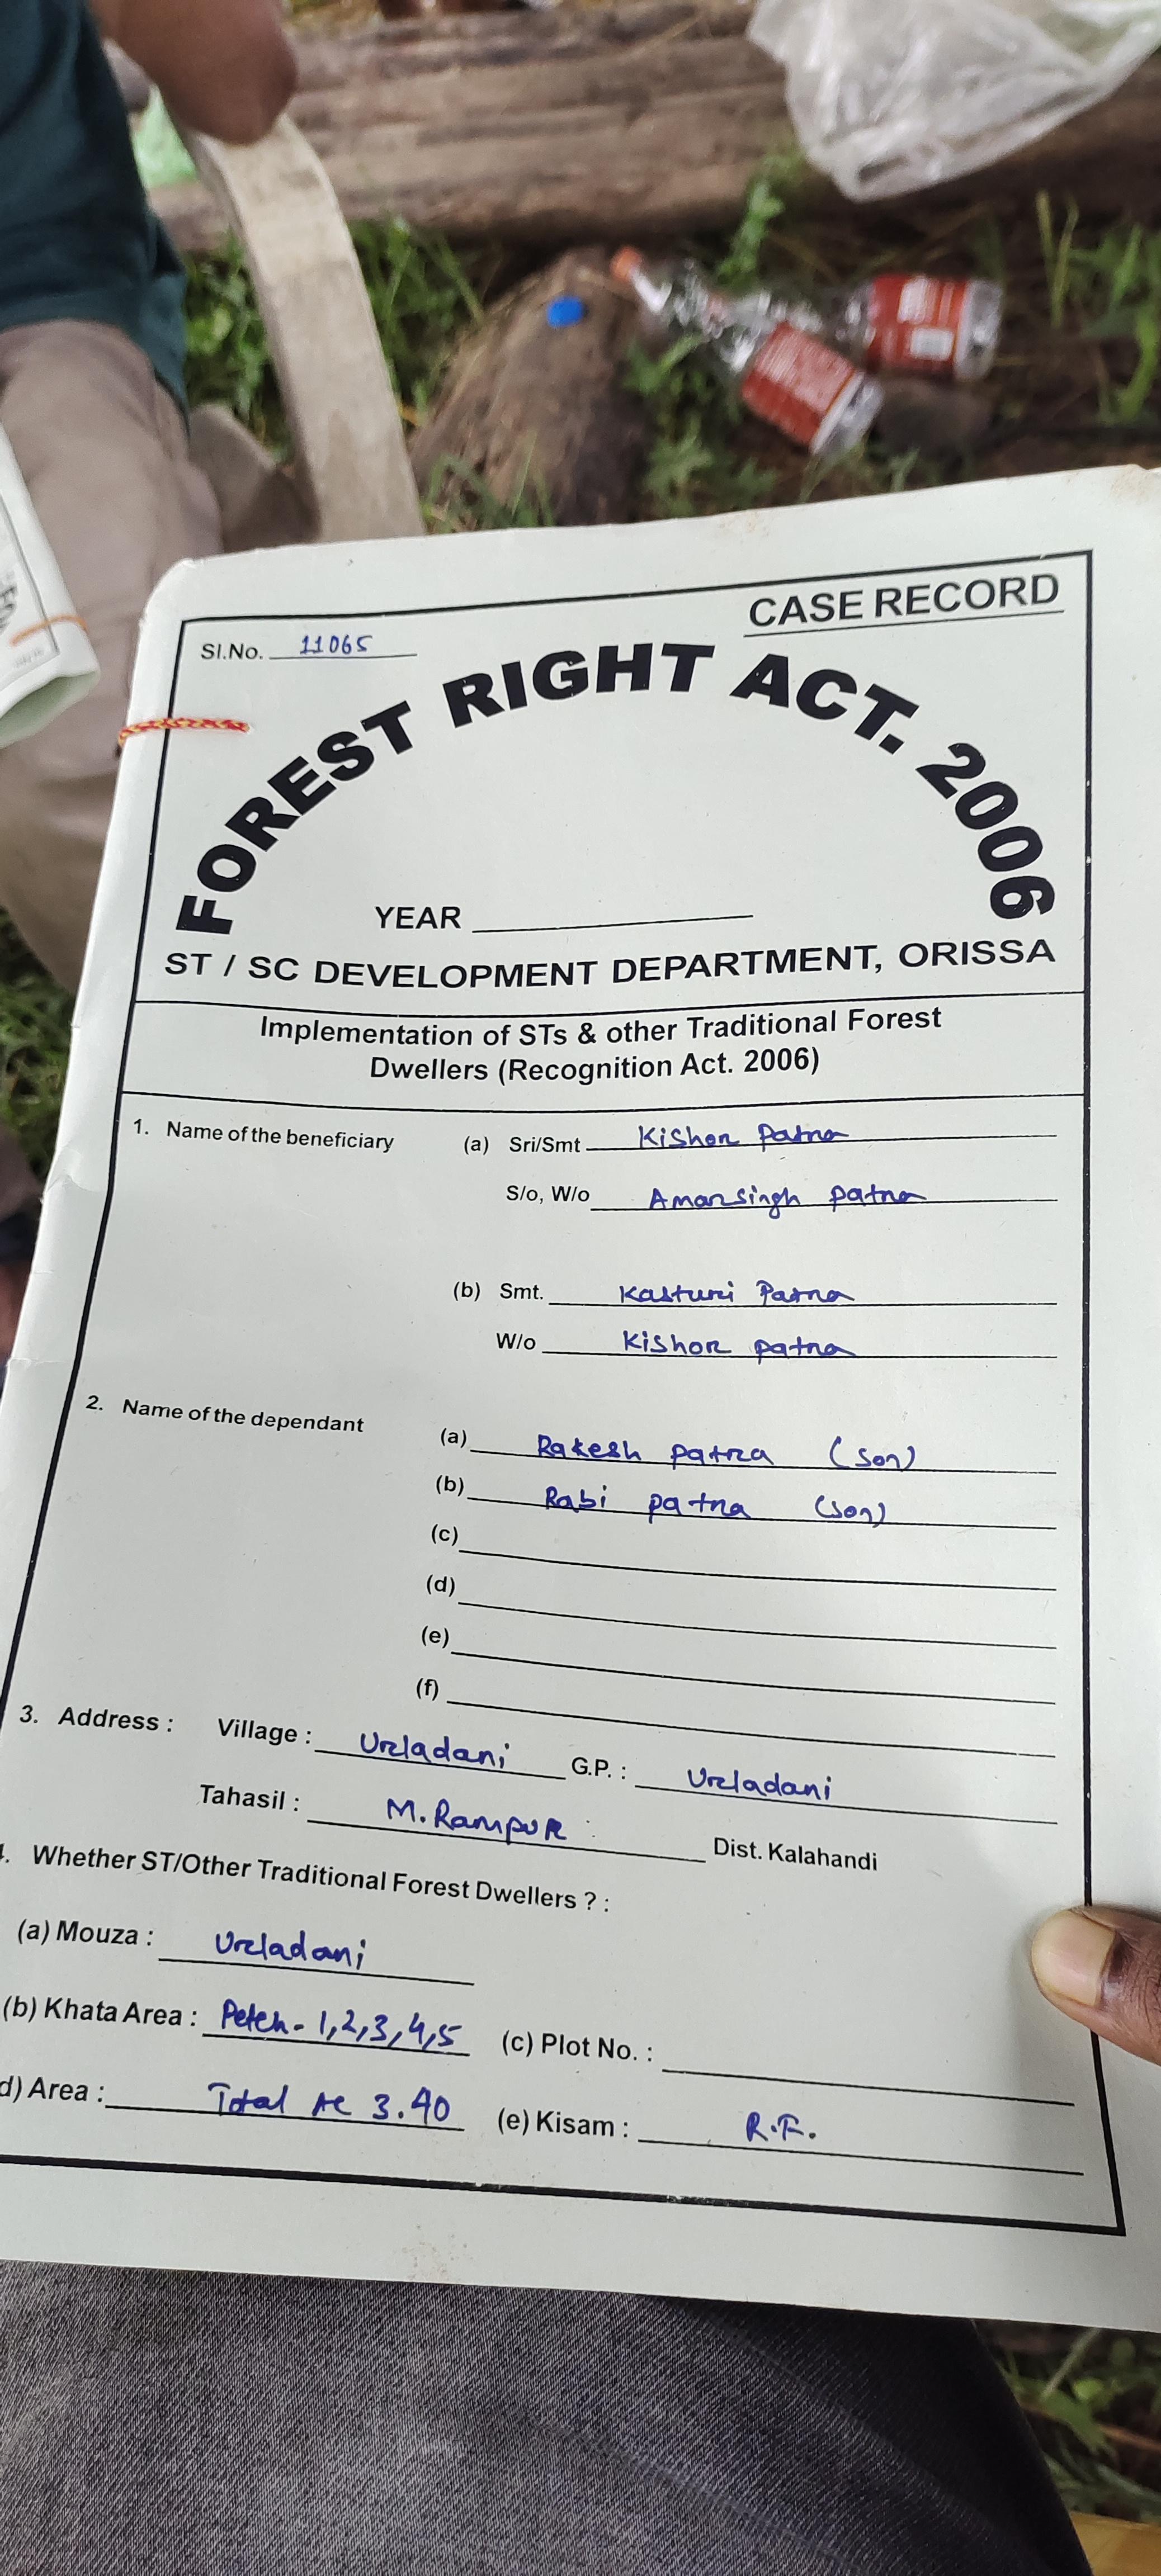 CASE RECORD
Sl.No. 11065
FOREST RIGHT ACT. 2006
YEAR
ST / SC DEVELOPMENT DEPARTMENT, ORISSA
Implementation of STs & other Traditional Forest
Dwellers (Recognition Act. 2006)
1. Name of the beneficiary (a) Sri/Smt Kishor Patra
S/o, W/o Amarsingh patra
(b) Smt. Kasturi Patra
W/o Kishor patra
2. Name of the dependant
(a) Rakesh patra (son)
(b) Rabi patra (son)
(c)
(d)
(e)
(f)
3. Address : Village : Urladani G.P. : Urladani
Tahasil : M.Rampur Dist. Kalahandi
. Whether ST/Other Traditional Forest Dwellers ? :
(a) Mouza : Urladani
(b) Khata Area : Petch- 1,2,3,4,5 (c) Plot No. :
d) Area : Total Ac 3.40 (e) Kisam : R.F.